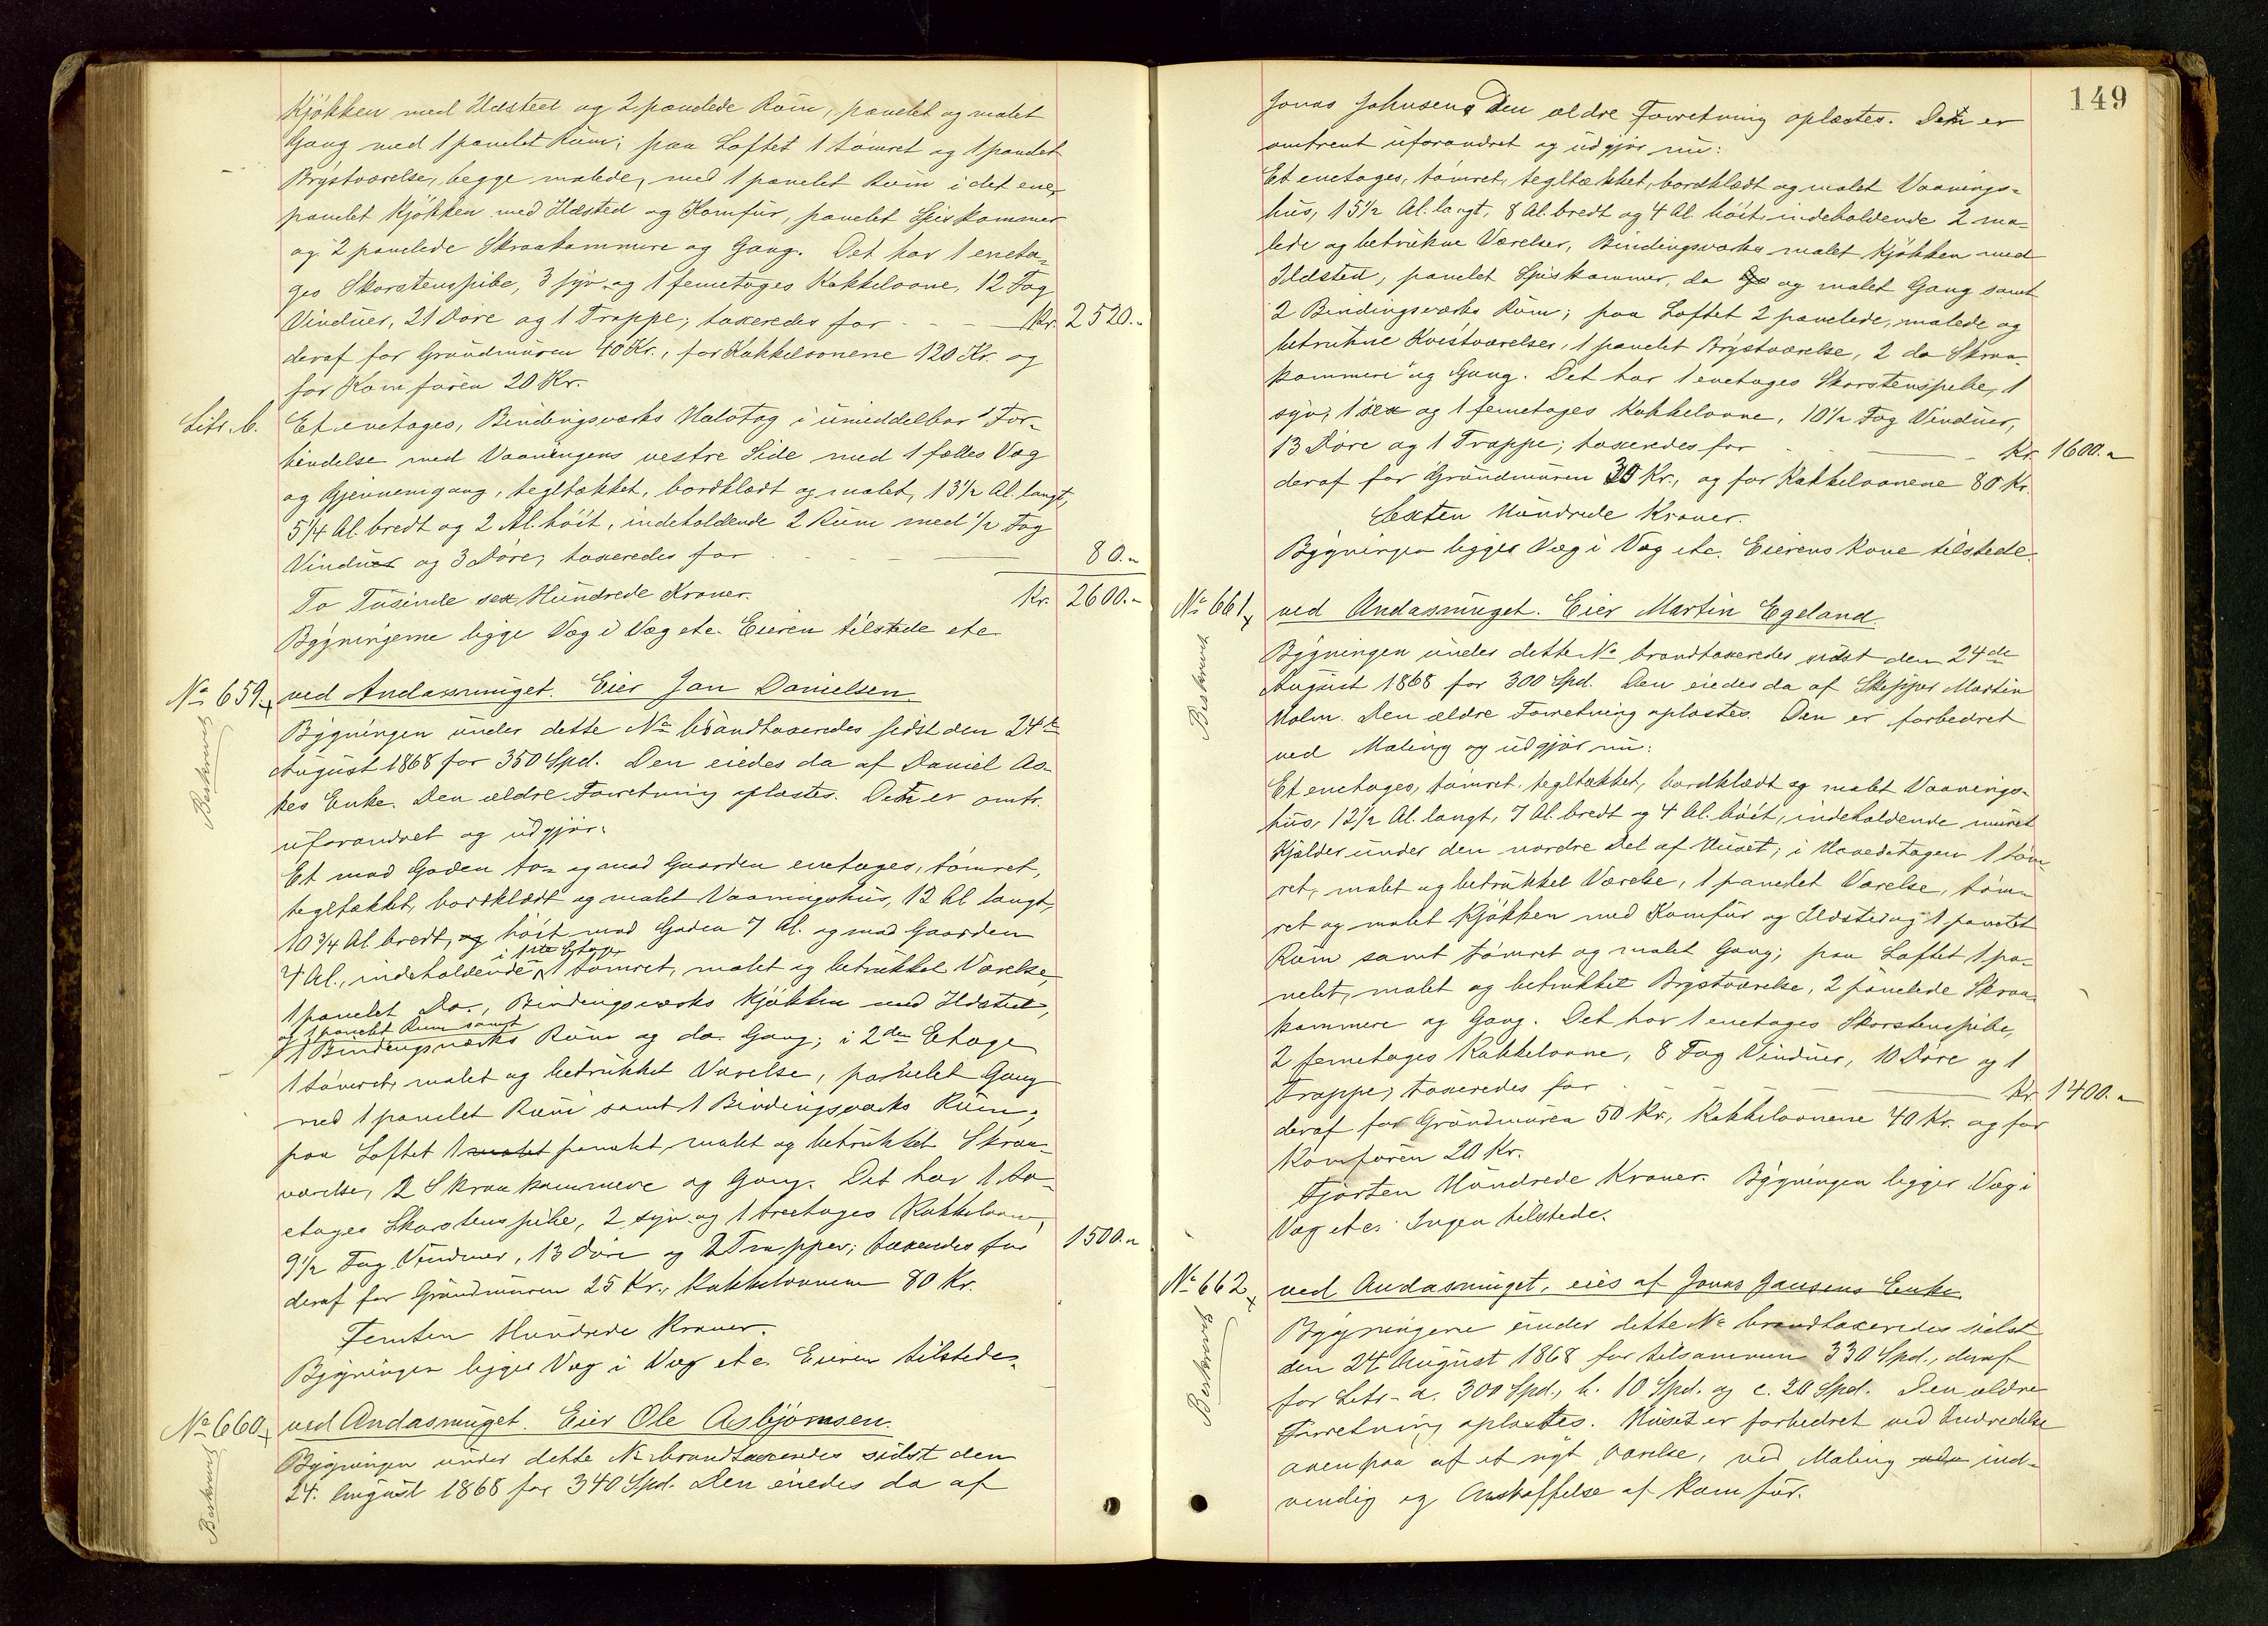 Kjøkken med Ildsted og 2 panelede Rum, panelet og malet
Gang med 1 panelet Rum; paa Loftet 1 tømret og 1 panelet
Brystværelse, begge malede, med 1 panelet Rum i det ene,
panelet Kjøkken med Ildsted og Komfur, panelet Spiskammer
og 2 panelede Skraakammere og Gang. Det har 1 eneta-
ges Skorstenspibe, 3 syv- og 1 femetages Kakkelovne, 12 Fag
Vinduer, 21 Døre og 1 Trappe; taxeredes for - - - Kr. 2520.-
deraf for Grundmuren 40 Kr., for Kakkelovnene 120 Kr. og
for Komfuren 20 Kr.
Litr. b. Et enetages, Bindingsværks Halvtag i umiddelbar For-
bindelse med Vaaningens vestre Side med 1 fælles Væg
og Gjennemgang, tegltækket, bordklædt og malet, 13½ Al. langt,
5¼ Al. bredt og 2 Al. høit, indeholdende 2 Rum med ½ Fag
Vinduer og 3 Døre; taxeredes for - - 80.-
To Tusinde sex Hundrede Kroner. Kr. 2600.-
Bygningerne ligge Væg i Væg etc. Eieren tilstede etc.
No 659 ved Andasmuget. Eier Jan Danielsen.
Beskrevet
Bygningen under dette No brandtaxeredes sidst den 24de
August 1868 for 350 Spd. Den eiedes da af Daniel As-
kes Enke. Den ældre Forretning oplæstes. Den er omtr.
uforandret og udgjør:
Et mod Gaden to- og mod Gaarden enetages, tømret,
tegltækket, bordklædt og malet Vaaningshus, 12 Al. langt,
10¾ Al. bredt, og høit mod Gaden 7 Al. og mod Gaarden
i 1ste Etage
4 Al., indeholdende 1 tømret, malet og betrukket Værelse,
1 panelet Do., Bindingsværks Kjøkken med Ildsted,
og 1 panelet Rum samt
1 Bindingsværks Rum og do. Gang; i 2den Etage
1 tømret, malet og betrukket Værelse, panelet Gang
med 1 panelet Rum samt 1 Bindingsværks Rum;
paa Loftet 1 malet panelet, malet og betrukket Skraa-
værelse, 2 Skraakammere og Gang. Det har 1 to-
etages Skorstenspibe, 2 syv- og 1 treetages Kakkelovne,
9½ Fag Vinduer, 13 Døre og 2 Trapper; taxeredes for 1500.-
deraf for Grundmuren 25 Kr., Kakkelovnene 80 Kr.
Femten Hundrede Kroner.
Bygningen ligger Væg i Væg etc. Eieren tilstede.
No 660 ved Andasmuget. Eier Ole Asbjørnsen.
Beskrevet
Bygningen under dette No brandtaxeredes sidst den
24. August 1868 for 340 Spd. Den eiedes da af
149
Jonas Johnsen. Den ældre Forretning oplæstes. Den er
omtrent uforandret og udgjør nu:
Et enetages, tømret, tegltækket, bordklædt og malet Vaanings-
hus, 15½ Al. langt, 8 Al. bredt og 4 Al. høit, indeholdende 2 ma-
lede og betrukne Værelser, Bindingsværks malet Kjøkken med
Ildsted, panelet Spiskammer, do og malet Gang samt
2 Bindingsværks Rum; paa Loftet 2 panelede, malede og
betrukne Kvistværelser, 1 panelet Brystværelse, 2 do Skraa-
kammere og Gang. Det har 1 enetages Skorstenspibe, 1
syv, 1 sex og 1 femetages Kakkelovne, 10½ Fag Vinduer,
13 Døre og 1 Trappe; taxeredes for - Kr. 1600.-
deraf for Grundmuren 35 Kr., og for Kakkelovnene 80 Kr.
Sexten Hundrede Kroner.
Bygningen ligger Væg i Væg etc. Eierens Kone tilstede.
No 661 ved Andasmuget. Eier Martin Egeland.
Beskrevet
Bygningen under dette No brandtaxeredes sidst den 24de
August 1868 for 300 Spd. Den eiedes da af Skipper Martin
Holm. Den ældre Forretning oplæstes. Den er forbedret
ved Maling og udgjør nu:
Et enetages, tømret, tegltækket, bordklædt og malet Vaanings-
hus, 12½ Al. langt, 7 Al. bredt og 4 Al. høit, indeholdende muret
Kjælder under den nordre Del af Huset; i Hovedetagen 1 tøm-
ret, malet og betrukket Værelse, 1 panelet Værelse, tøm-
ret og malet Kjøkken med Komfur og Ildsted og 1 panelet
Rum samt tømret og malet Gang; paa Loftet 1 pa-
nelet, malet og betrukket Brystværelse, 2 panelede Skraa-
kammere og Gang. Det har 1 enetages Skorstenspibe,
2 femetages Kakkelovne, 8 Fag Vinduer, 10 Døre og 1
Trappe; taxeredes for - - - Kr. 1400.-
deraf for Grundmuren 50 Kr., Kakkelovnene 40 Kr. og for
Komfuren 20 Kr.
Fjorten Hundrede Kroner. Bygningen ligger Væg i
Væg etc. Ingen tilstede.
No 662 ved Andasmuget, eies af Jonas Jansens Enke.
Beskrevet
Bygningerne under dette No brandtaxeredes sidst
den 24. August 1868 for tilsammen 330 Spd., deraf
for Litr. a. 300 Spd., b. 10 Spd. og c. 20 Spd. Den ældre
Forretning oplæstes. Huset er forbedret ved Indredelse
ovenpaa af et nyt Værelse, ved Maling ind-
vendig og Anskaffelse af Komfur.